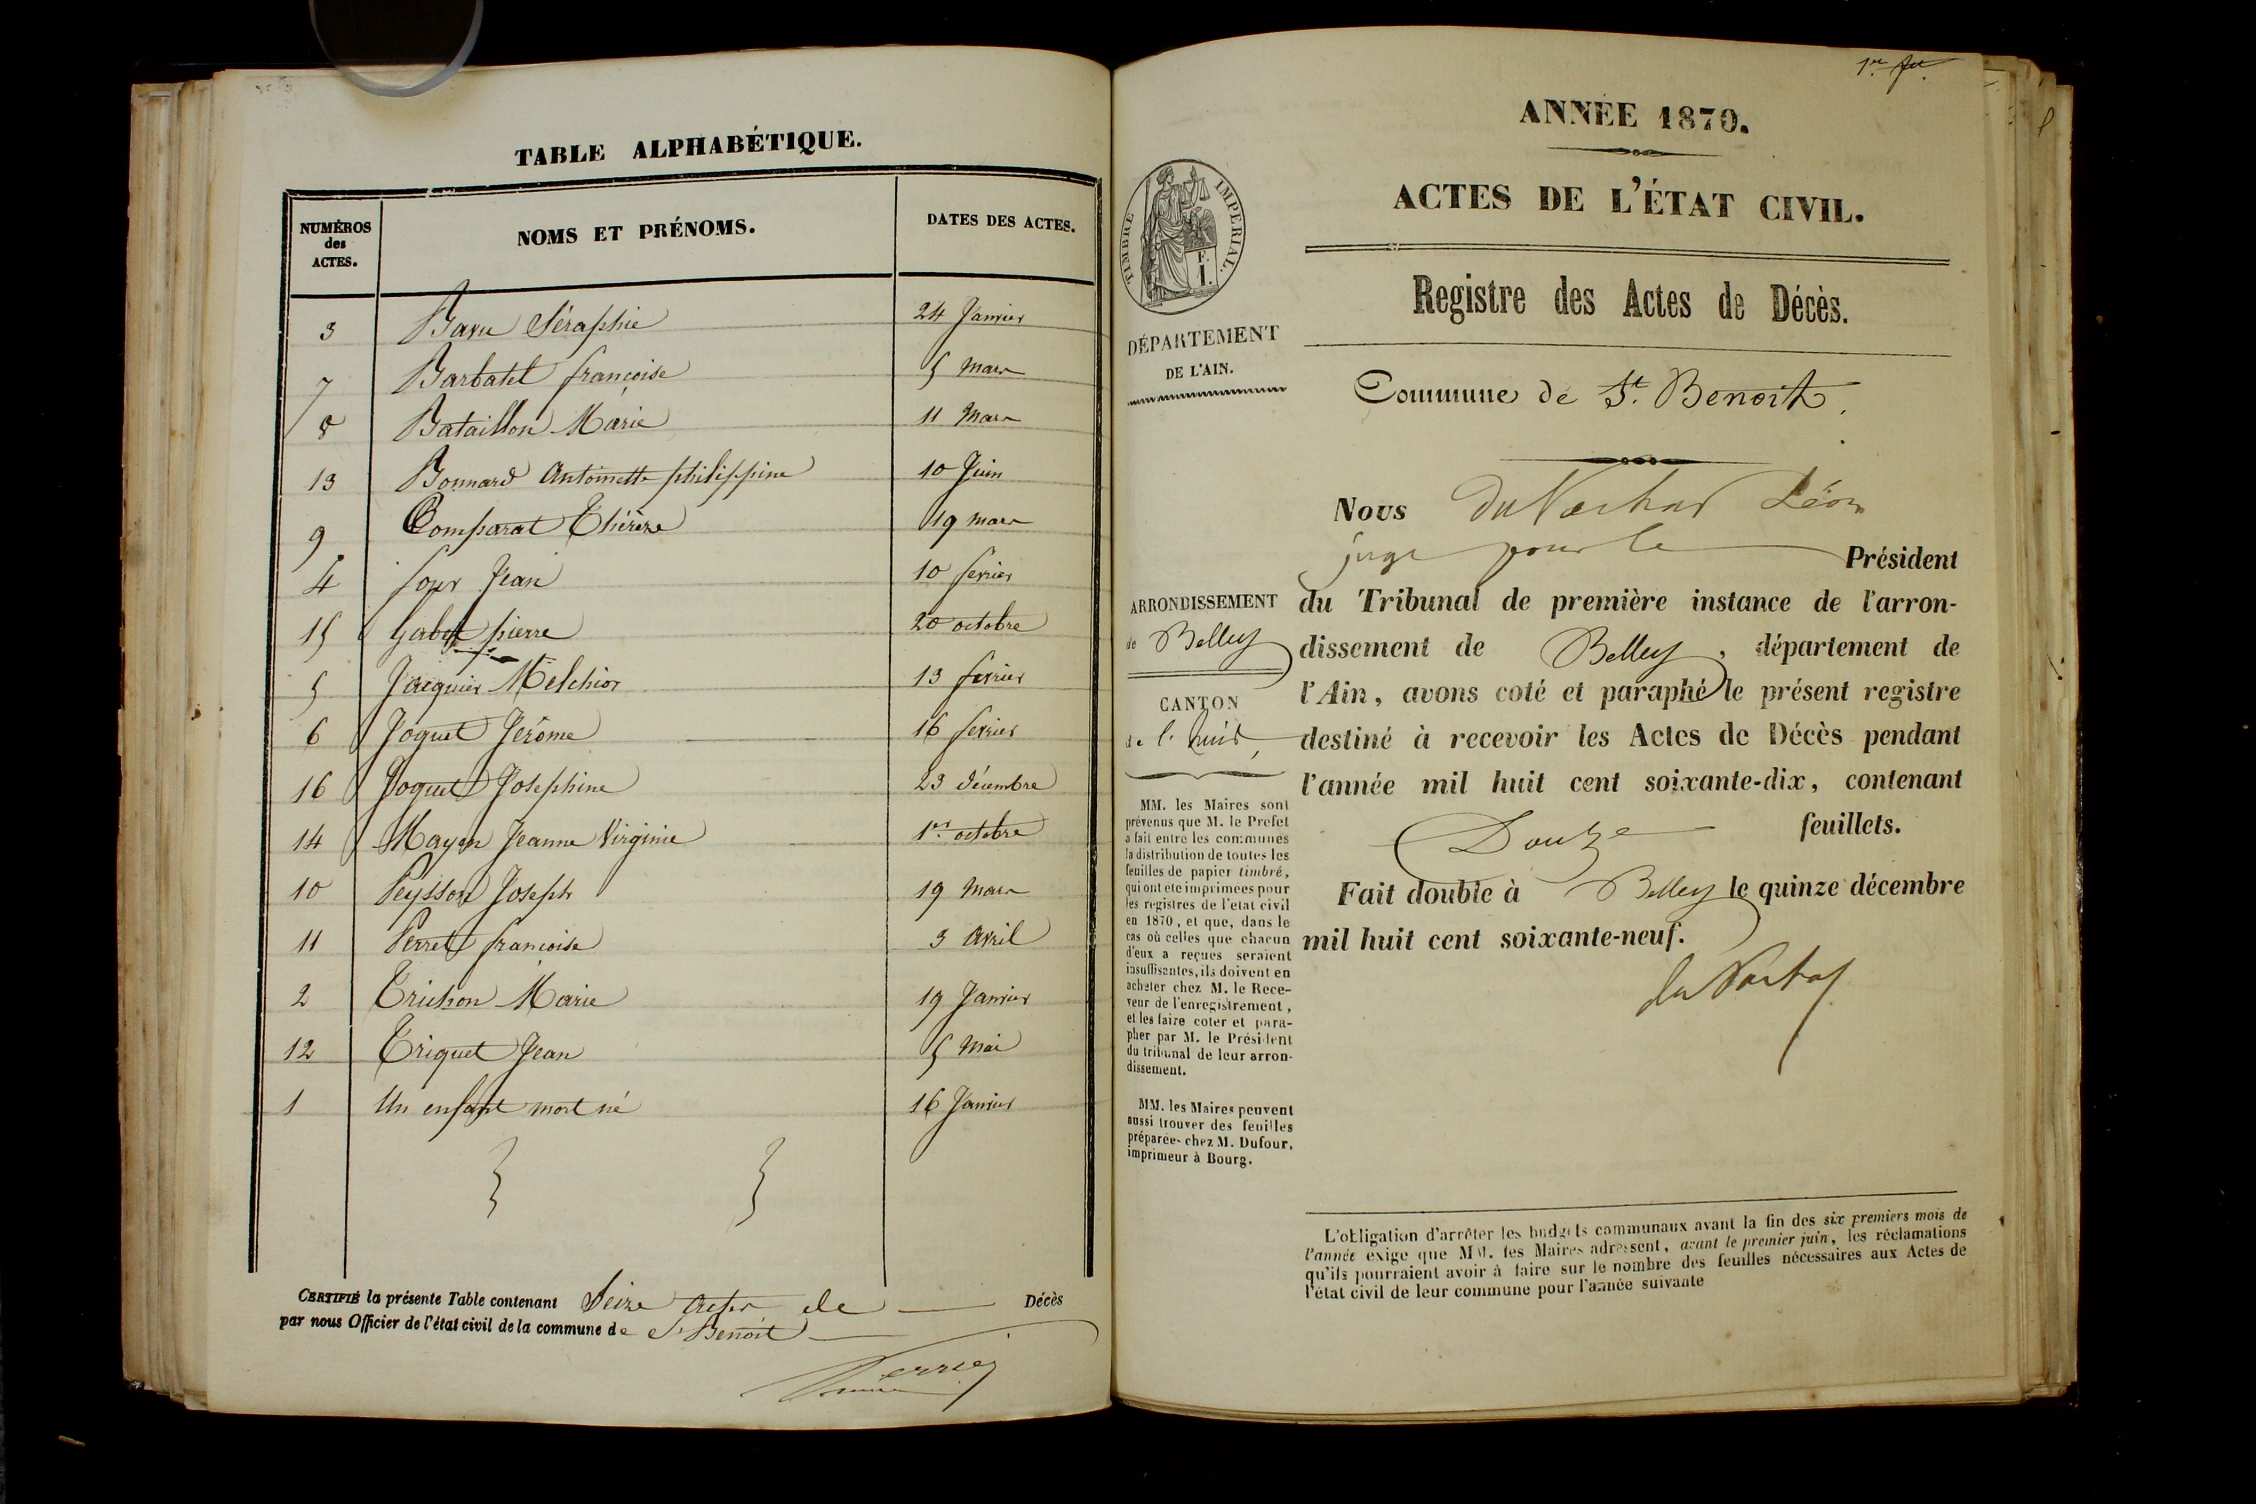 TABLE ALPHABÉTIQUE.
NUMÉROS des ACTES. NOMS ET PRÉNOMS. DATES DES ACTES.
3 Séraphie 24 Janvier
7 Barbatel françoise 5 Mars
8 Bataillon Marie 11 Mars
13 Bonnard Antoinette philippine 10 Juin
9 Comparat Thérèze 19 mars
4 Jean 10 fevrier
15 pierre 20 octobre
5 Jacquier Melchior 13 fevrier
6 Joguet Jérôme 16 fevrier
16 Joguet Josephine 23 décembre
14 Mayen Jeanne Virginie 1er octobre
10 Peysson Joseph 19 Mars
11 Perret francoise 3 Avril
2 Trichon Marie 19 Janvier
12 Triquet Jean 5 Mai
1 Un enfant mort né 16 Janvier
CERTIFIÉ la présente Table contenant Seize actes de Décès
par nous Officier de l'état civil de la commune de St Benoit
1er fet.
ANNÉE 1870.
ACTES DE L'ÉTAT CIVIL.
Registre des Actes de Décès.
Commune de St. Benoit.
TIMBRE IMPÉRIAL.
F.
1.
DÉPARTEMENT
DE L'AIN.
ARRONDISSEMENT
de Belley
CANTON
de l'huis
MM. les Maires sont
prévenus que M. le Préfet
a fait entre les communes
la distribution de toutes les
feuilles de papier timbré,
qui ont été imprimées pour
les registres de l'état civil
en 1870, et que, dans le
cas où celles que chacun
d'eux a reçues seraient
insuffisantes, ils doivent en
acheter chez M. le Rece-
veur de l'enregistrement,
et les faire coter et para-
pher par M. le Président
du tribunal de leur arron-
dissement.
MM. les Maires peuvent
aussi trouver des feuilles
préparées chez M. Dufour,
imprimeur à Bourg.
Nous Léon
juge pour le Président
du Tribunal de première instance de l'arron-
dissement de Belley, département de
l'Ain, avons coté et paraphé le présent registre
destiné à recevoir les Actes de Décès pendant
l'année mil huit cent soixante-dix, contenant
Douze feuillets.
Fait double à Belley le quinze décembre
mil huit cent soixante-neuf.
L'obligation d'arrêter les budgets communaux avant la fin des six premiers mois de
l'année exige que MM. les Maires adressent, avant le premier juin, les réclamations
qu'ils pourraient avoir à faire sur le nombre des feuilles nécessaires aux Actes de
l'état civil de leur commune pour l'année suivante